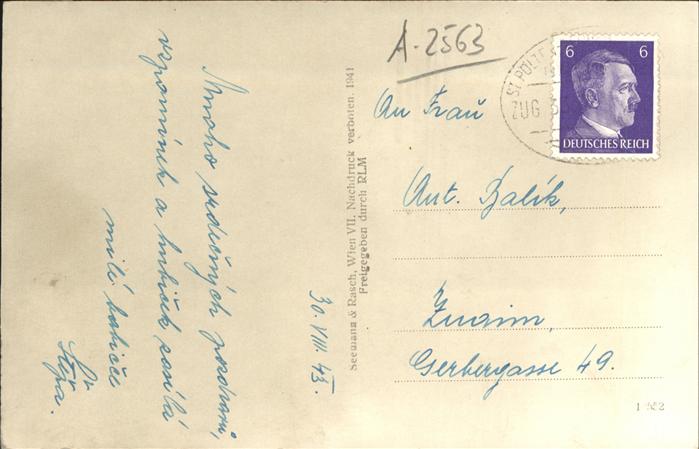 A-2563
ST. PÖLTEN
ZUG
6 6
DEUTSCHES REICH
An Frau
Ant. Balík,
Znaim,
Gerbergasse 49.
Mnoho srdečných pozdravů,
vzpomínek a hubiček posílá
milé babičce
Štěpa.
30. VIII. 43.
Seemann & Rasch, Wien VII. Nachdruck verboten. 1941
Freigegeben durch RLM